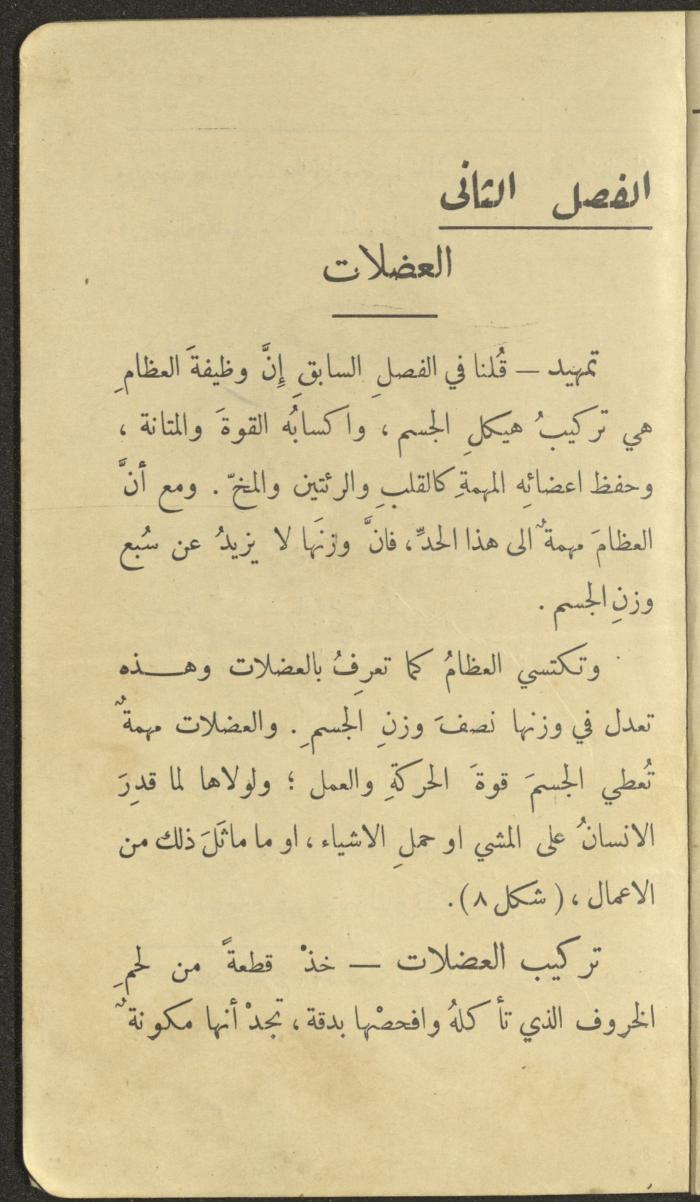 الفصل الثانى
العضلات
تمهيد — قُلنا في الفصلِ السابقِ إِنَّ وظيفةَ العظامِ
هي تركيبُ هيكلِ الجسم ، واكسابُه القوةَ والمتانة ،
وحفظ اعضائِه المهمةِ كالقلبِ والرئتين والمخّ . ومع أنَّ
العظامَ مهمةٌ الى هذا الحدِّ ، فانَّ وزنَها لا يزيدُ عن سُبع
وزنِ الجسم .
وتكتسي العظامُ كما تعرِفُ بالعضلات وهـــذه
تعدل في وزنها نصفَ وزنِ الجسمِ . والعضلات مهمةٌ
تُعطي الجسمَ قوةَ الحركةِ والعمل ؛ ولولاها لما قدِرَ
الانسانُ على المشي او حملِ الاشياء ، او ما ماثَلَ ذلك من
الاعمال ، ( شكل ٨ ) .
تركيب العضلات — خذْ قطعةً من لحمِ
الخروف الذي تأكلهُ وافحصْها بدقة ، تجدْ أنها مكونةٌ